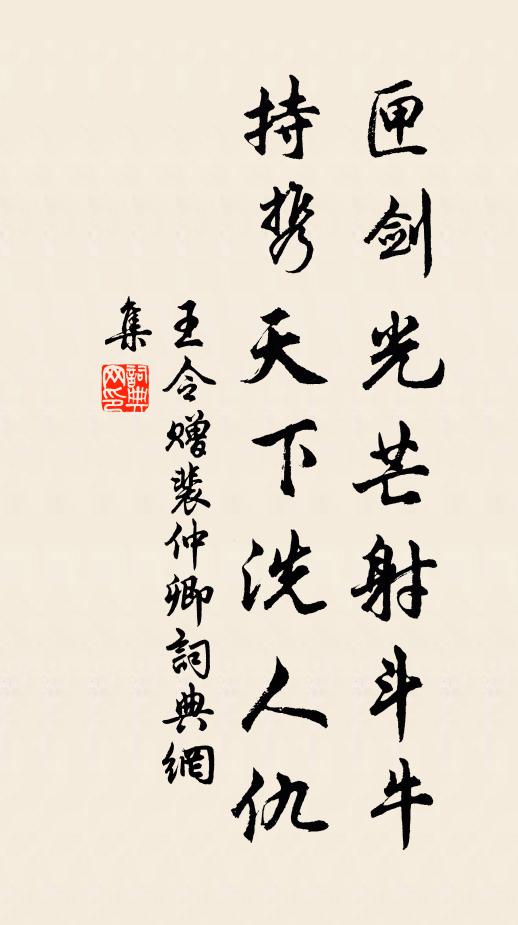 匣剑光芒射斗牛
持携天下洗人仇
王令赠裴仲卿詞典網
集
詞典网印